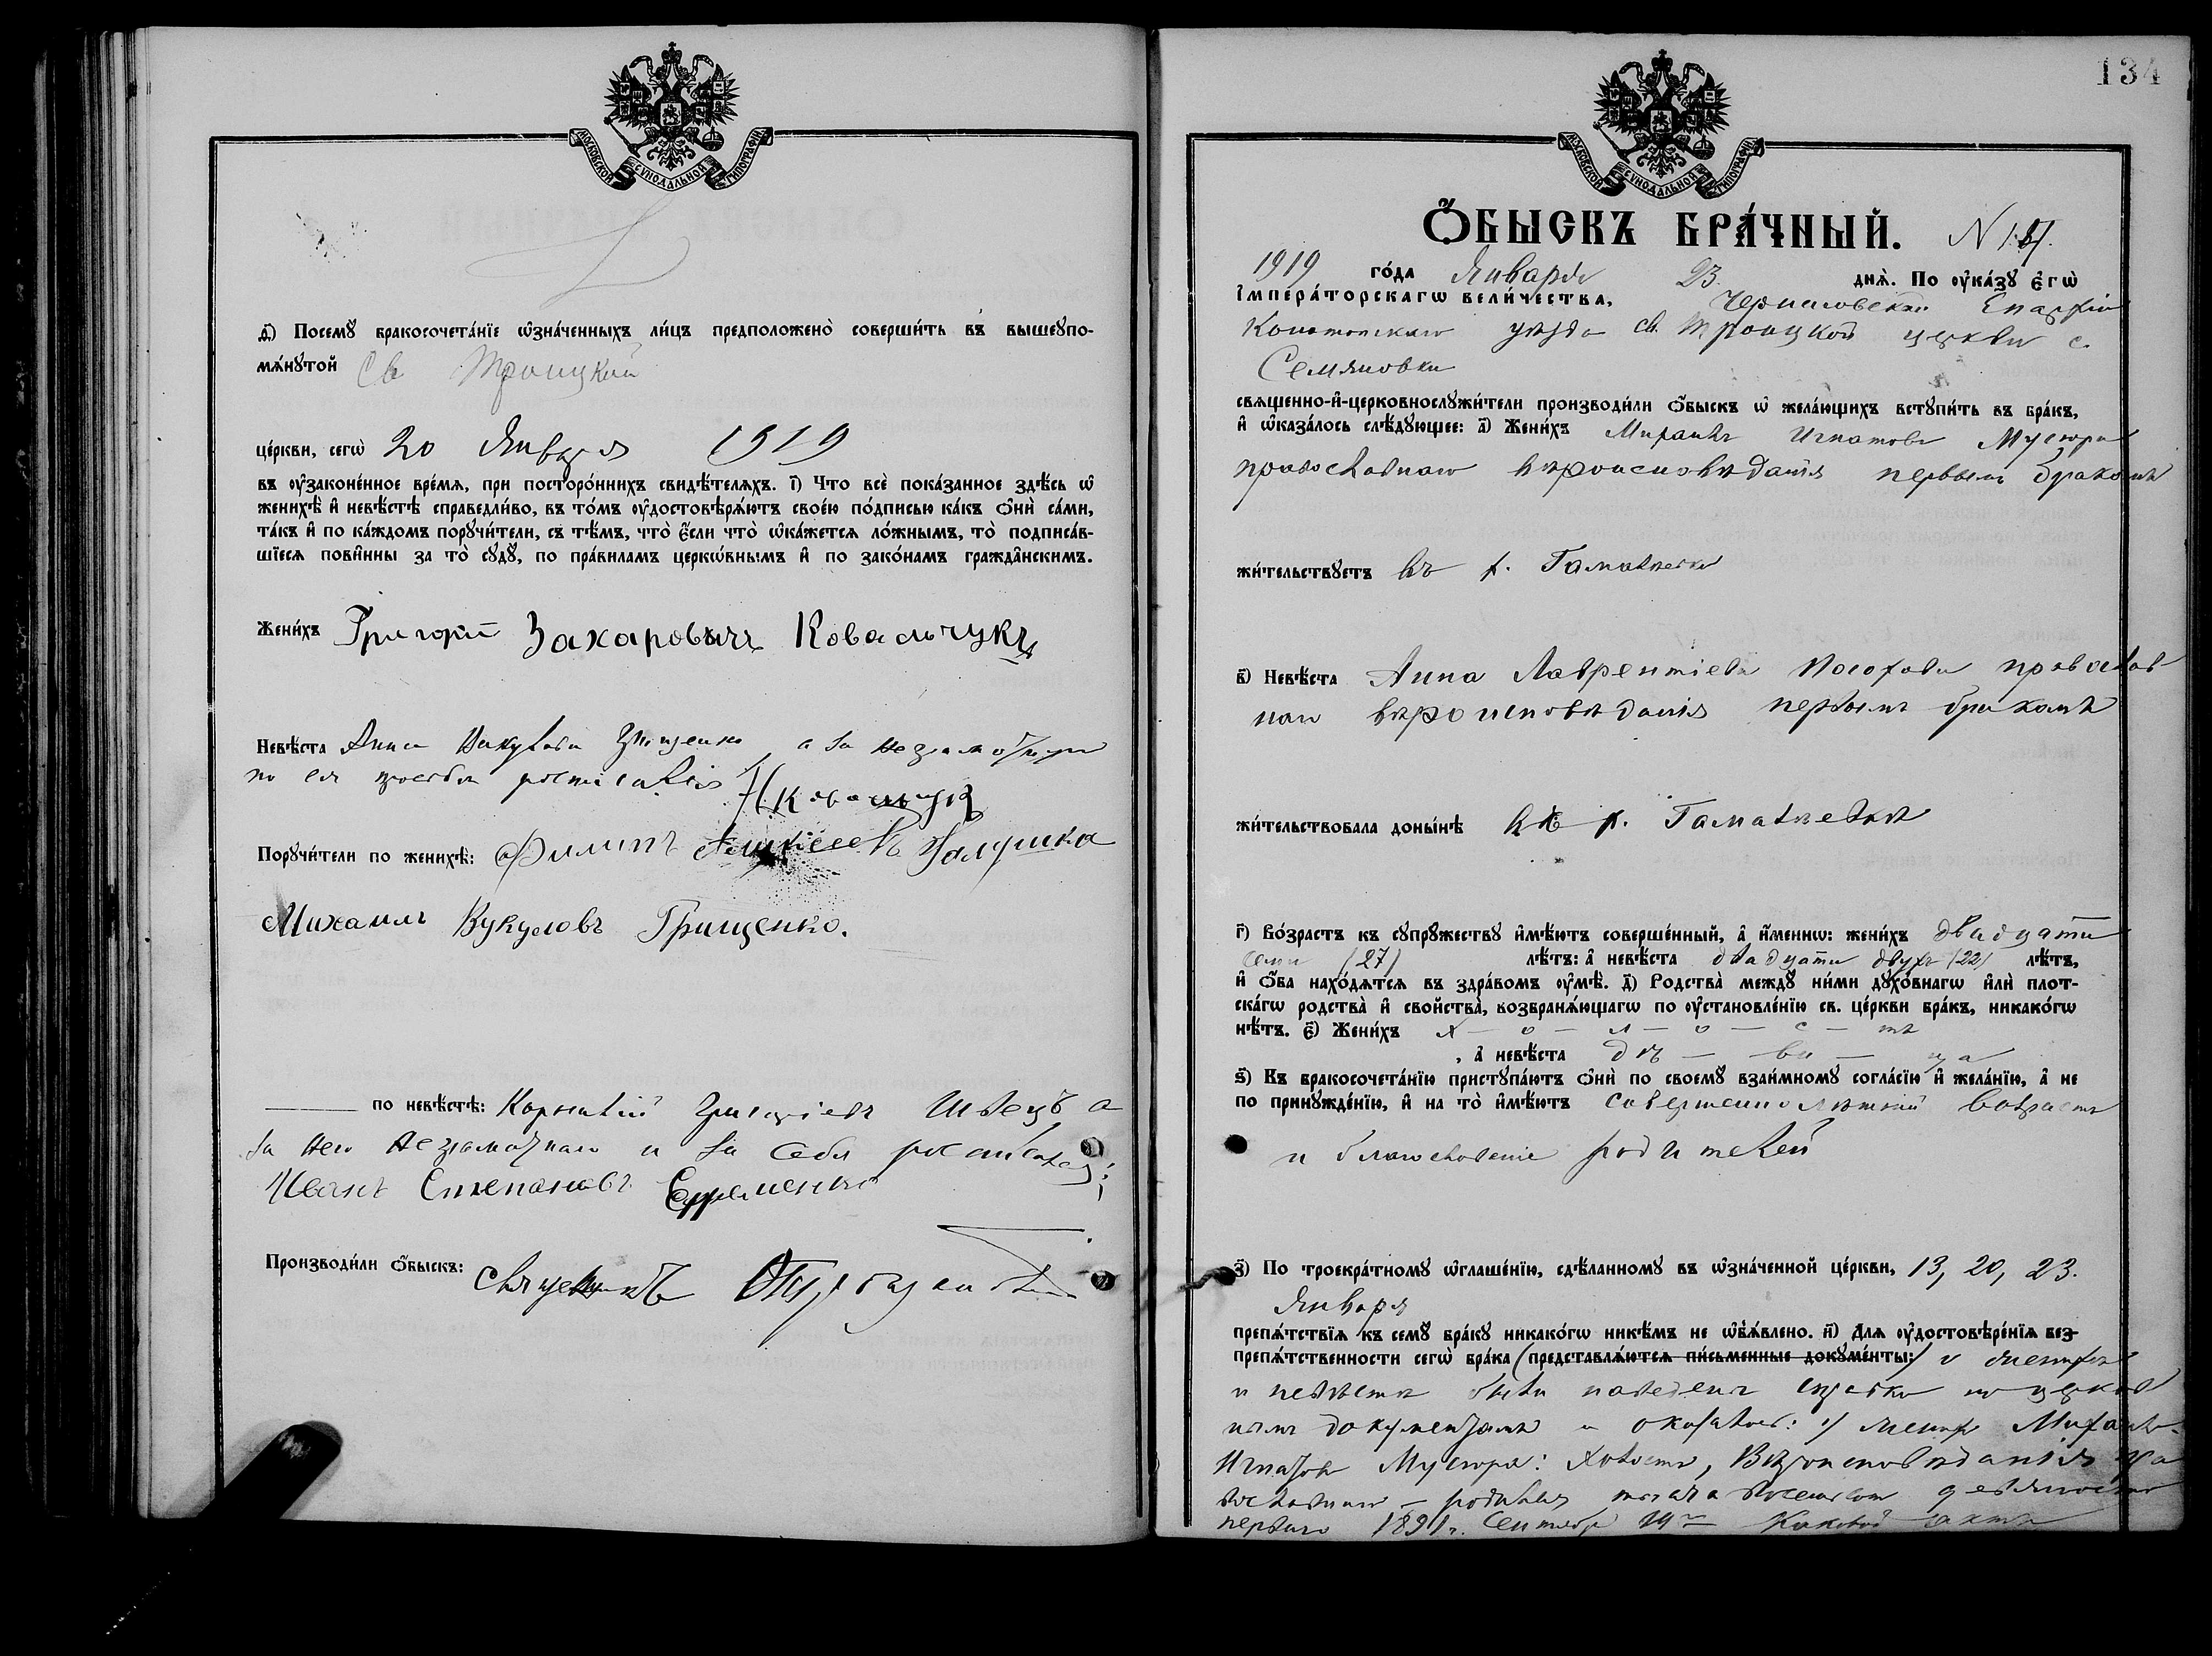 МОСКОВСКОЙ СУНОДАЛЬНОЙ ТИПОГРАФІИ
д҃) Посемꙋ̀ бракосочета́нїе ѡ҆зна́ченныхъ ли́цъ предположено̀ соверши́ть въ вышеꙋпо-
мѧ́нꙋтой Св Троицкой
це́ркви, сегѡ̀ 20 Января 1919
въ ᲂу҆зако́ненное вре́мѧ, при посторо́ннихъ свидѣ́телѧхъ. і҃) Что всѐ пока́занное здѣ́сь ѡ҆
женихѣ̀ и҆ невѣ́стѣ справедли́во, въ то́мъ ᲂу҆достовѣрѧ́ютъ свое́ю по́дписью ка́къ ѻ҆нѝ са́ми,
та́къ и҆ по ка́ждомъ порꙋчи́тели, съ тѣ́мъ, что̀ є҆́сли что̀ ѡ҆ка́жетсѧ ло́жнымъ, то̀ подписа́в-
шїесѧ пови́нны за то̀ сꙋдꙋ̀, по пра́виламъ церкѡ́внымъ и҆ по зако́намъ гражда́нскимъ.
Жени́хъ Григорій Захаровичъ Ковальчукъ
Невѣ́ста Анна Вукулова Грищенко, а за неграмотную
по ея просьбѣ росписался Н Ковальчукъ
Порꙋчи́тели по женихѣ̀: Филипъ Алексѣевъ
Михаилъ Вукуловъ Грищенко.
по невѣ́стѣ: Корнилій Григоріевъ Швецъ а
за него неграмотнаго и за себя росписался;
Иванъ Степановъ Ефременко
Производи́ли ѻ҆́быскъ: священникъ
134
МОСКОВСКОЙ СУНОДАЛЬНОЙ ТИПОГРАФІИ
Ѻ҆́БЫСКЪ БРА́ЧНЫЙ. N
1919 го́да Января 23 днѧ̀. По ᲂу҆ка́зꙋ є҆гѡ̀
і҆мпера́торскагѡ вели́чества, Черниговской Епархіи
Конотопскаго уѣзда св. Троицкой церкви с.
Семяновки
свѧщенно-и҆-церковнослꙋжи́тели производи́ли ѻ҆́быскъ ѡ҆ жела́ющихъ встꙋпи́ть въ бра́къ,
и҆ ѡ҆каза́лось слѣ́дꙋющее: а҃) Жени́хъ Михаилъ Игнатовъ Мусюра
православнаго вѣроисповѣданія первымъ бракомъ
жи́тельствꙋетъ въ х. Гамалѣевкѣ
в҃) Невѣ́ста Анна Лаврентіева православ
наго вѣроисповѣданія первымъ бракомъ
жи́тельствовала доны́нѣ въ х. Гамалѣевкѣ
г҃) Во́зрастъ къ сꙋпрꙋ́жествꙋ и҆мѣ́ютъ соверше́нный, а҆ и҆́меннѡ: жени́хъ двадцати
семи (27) лѣ́тъ: а҆ невѣ́ста двадцати двухъ (22) лѣ́тъ,
и҆ ѻ҆́ба нахо́дѧтсѧ въ здра́вомъ ᲂу҆мѣ̀. д҃) Родства̀ междꙋ̀ ни́ми дꙋхо́внагѡ и҆лѝ плот-
ска́гѡ родства̀ и҆ сво́йства̀, возбранѧ́ющагѡ по ᲂу҆становле́нїю св. це́ркви бра́къ, никако́гѡ
нѣ́тъ. є҃) Жени́хъ х — о — л — о — с — тъ
, а҆ невѣ́ста дѣ — ви — ца
ѕ҃) Къ бракосочета́нїю пристꙋпа́ютъ ѻ҆нѝ по своемꙋ̀ взаи́мномꙋ согла́сїю и҆ жела́нїю, а҆ не
по принꙋжде́нїю, и҆ на то̀ и҆мѣ́ютъ совершеннолѣтній возрастъ
и благословеніе родителей
з҃) По троекра́тномꙋ ѡ҆глаше́нїю, сдѣ́ланномꙋ въ ѡ҆зна́ченной це́ркви, 13, 20, 23.
Января
препѧ́тствїѧ къ семꙋ̀ бра́кꙋ никако́гѡ никѣ́мъ не ѡ҆б̾ѧ́влено. и҃) Длѧ ᲂу҆достовѣре́нїѧ без-
препѧ́тственности сегѡ̀ бра́ка (представлѧ́ютсѧ пи́сьменные докꙋме́нты:) о женихѣ
и невѣстѣ были наведены справки по церков
нымъ документамъ и оказалось: 1) женихъ Михаилъ
Игнатовъ Мусюра: холостъ, вѣроисповѣданія пра
вославнаго — родился тысяча восемьсотъ девяносто
перваго 1891 г. Сентября каковой актъ